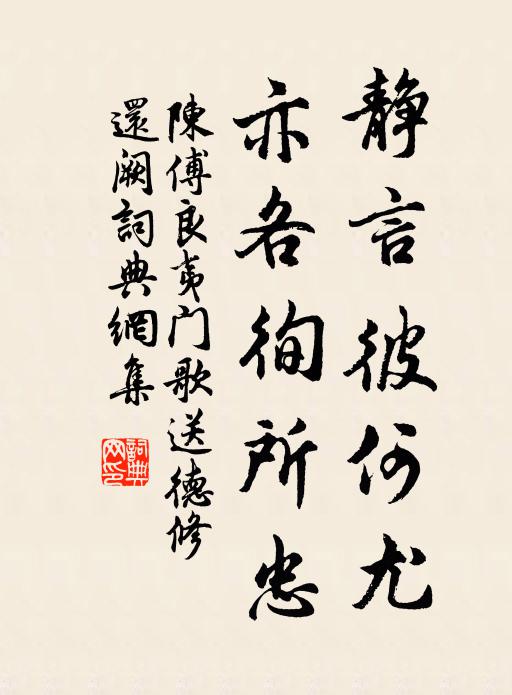 静言彼何尤
亦各徇所忠
陳傅良夷门歌送德修
還阙詞典網集
詞典
网印